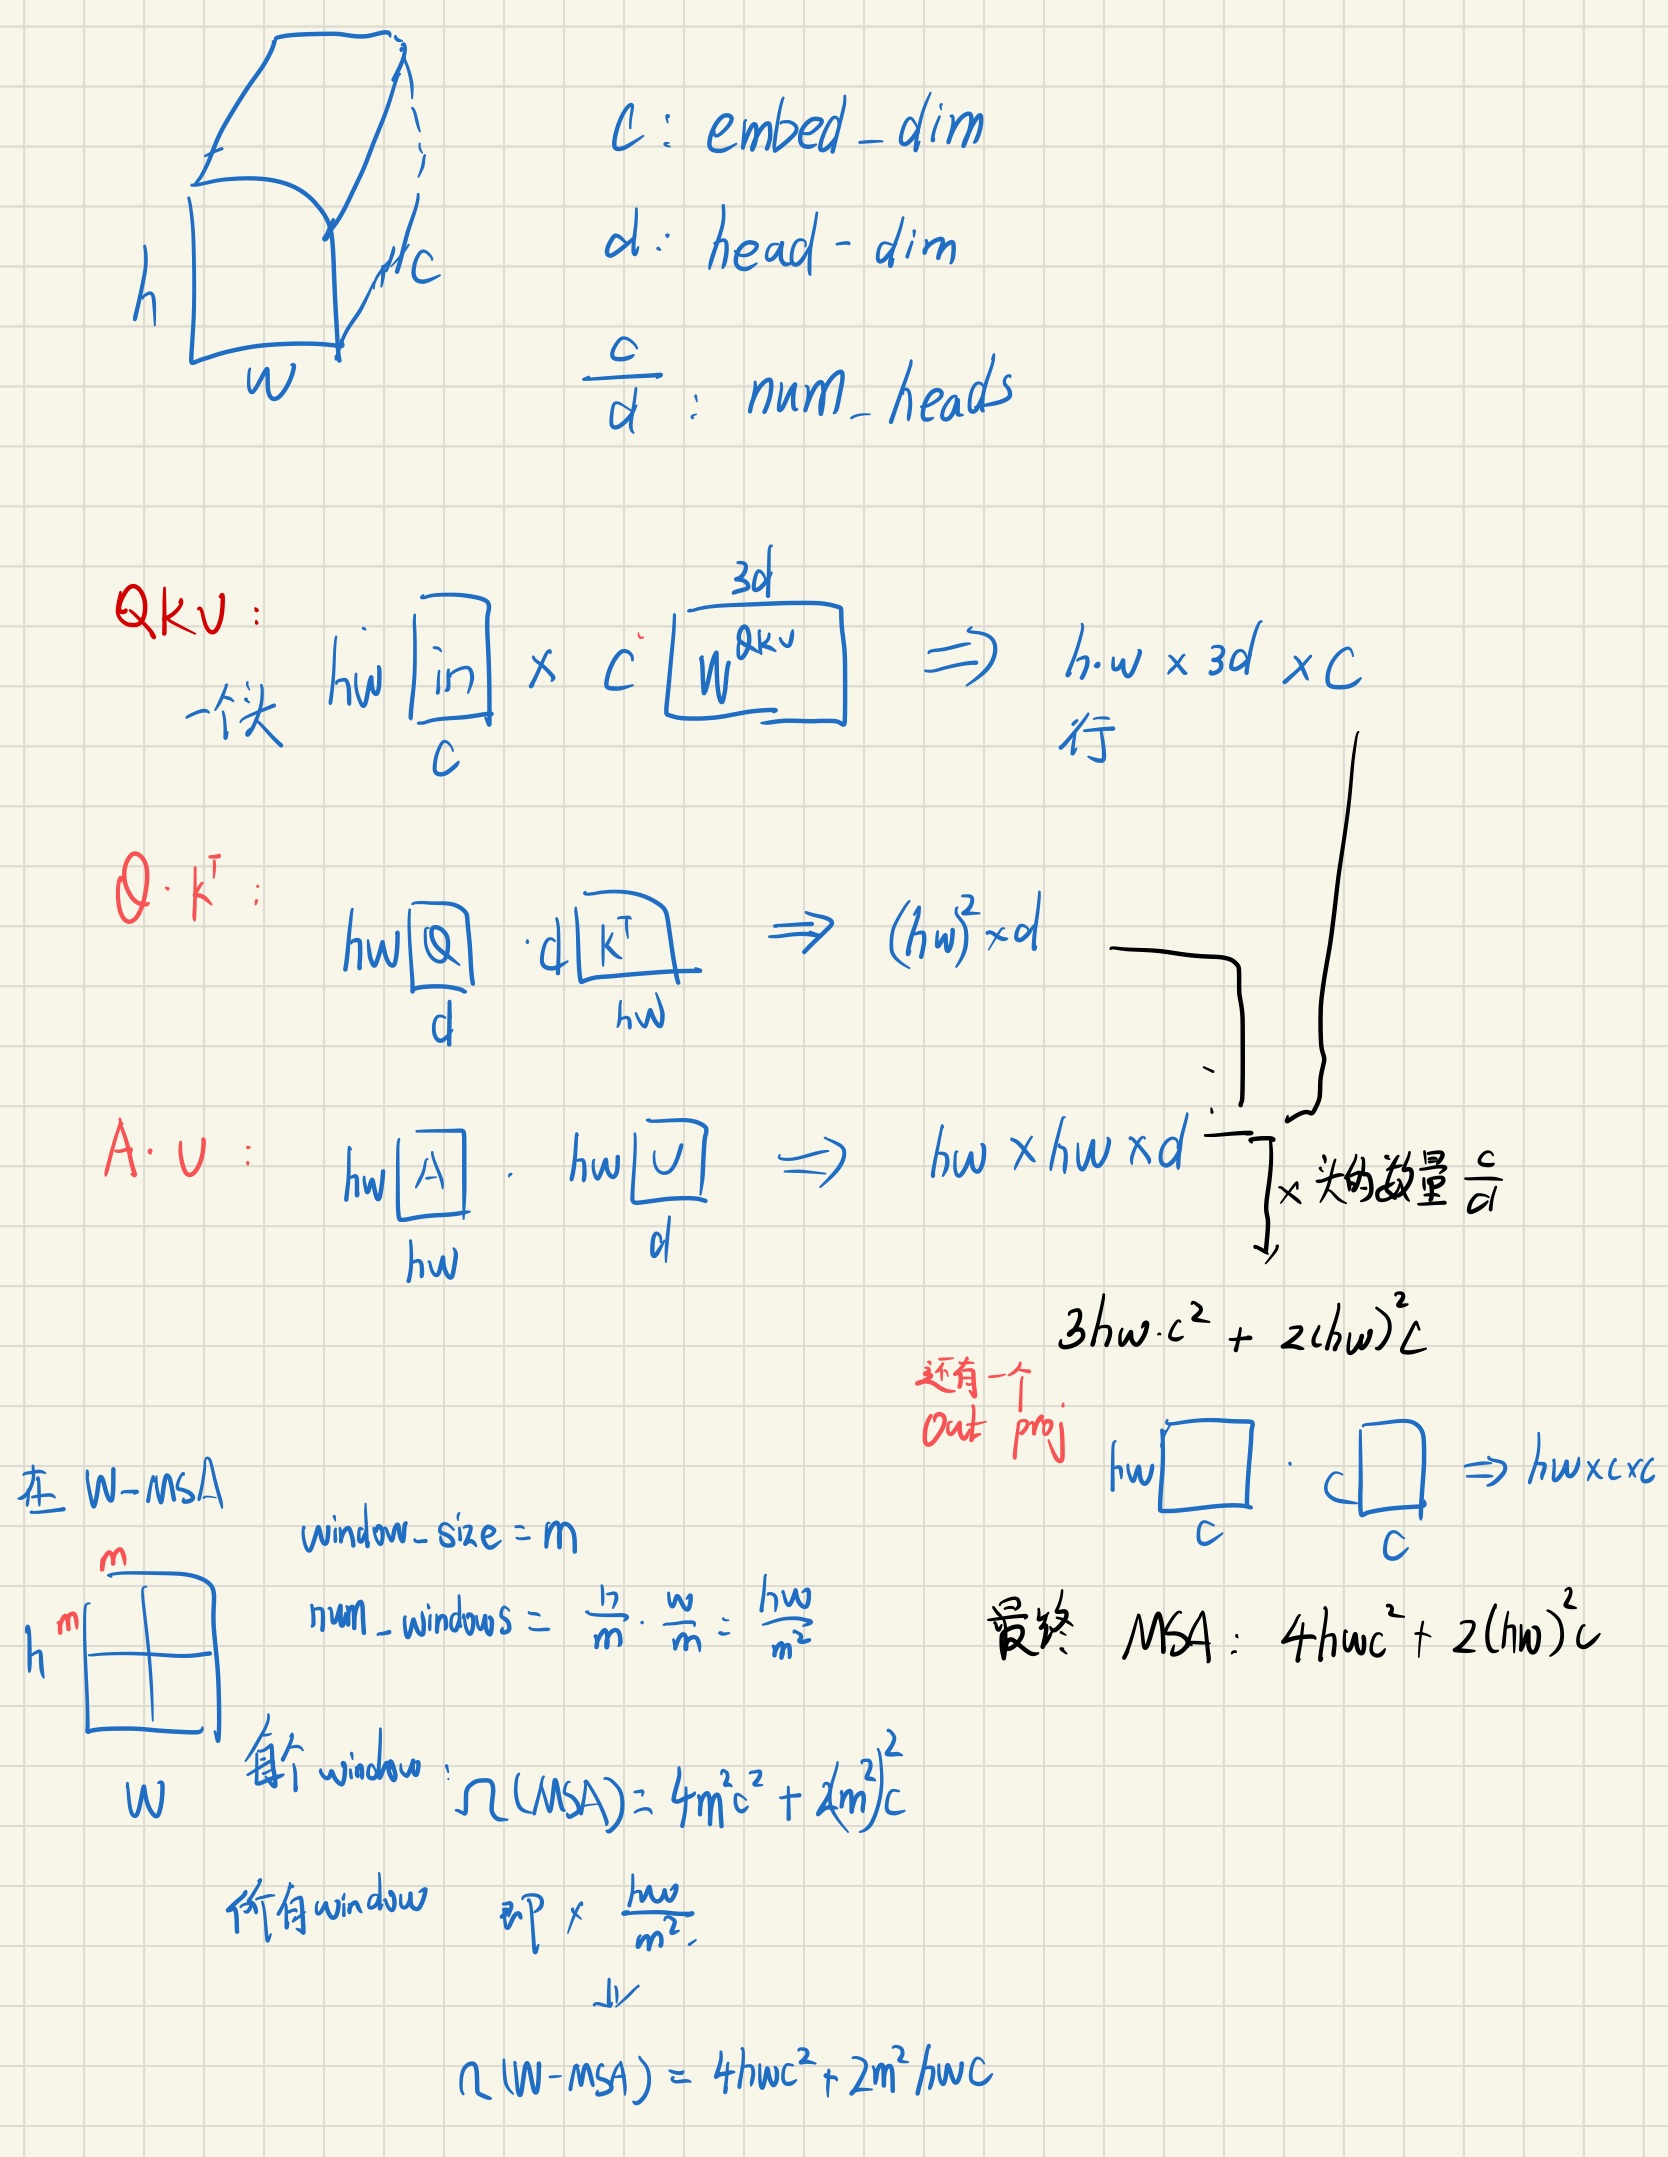 C: embed_dim
d: head-dim
c/d : num_heads
h
w
C
QKV:
一个头 hw in C × C W^QKV 3d ⇒ h·w × 3d × C
行
Q·K^T:
hw Q d · d K^T hw ⇒ (hw)²×d
A·V:
hw A hw · hw V d ⇒ hw × hw × d
× 头的数量 c/d
3hw·c² + 2(hw)²c
还有一个
Out proj
hw c · c c ⇒ hw×c×c
最终 MSA: 4hwc² + 2(hw)²c
在 W-MSA
m
m
h
w
window_size = m
num_windows = h/m · w/m = hw/m²
每个window: Ω(MSA) = 4m²c² + 2(m²)²c
所有window 即 × hw/m².
↓
Ω(W-MSA) = 4hwc² + 2m²hwc